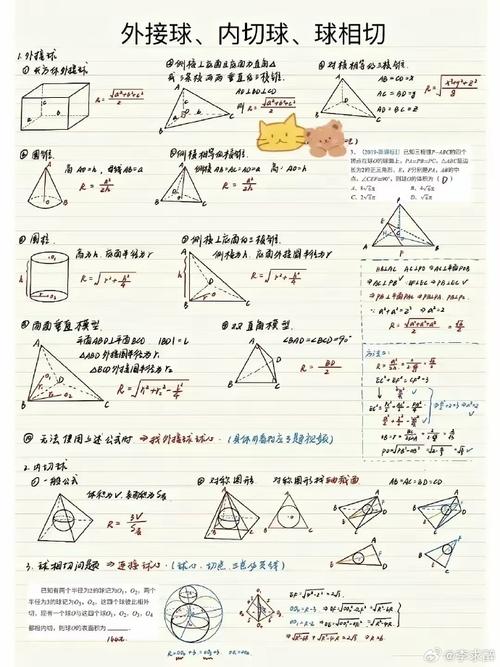 外接球、内切球、球相切
1. 外接球
① 长方体外接球
R=√(a²+b²+c²)/2
② 侧棱上底面且底面为直角△
或三条棱两两垂直的三棱锥
AD⊥BD⊥CD
则 R=√(a²+b²+c²)/2
③ 对棱相等的三棱锥
AB=CD=x
AC=BD=y
AD=BC=z
R=√((x²+y²+z²)/8)
④ 圆锥
高AO=h, 母线AB=a
R=a²/2h
⑤ 侧棱相等的三棱锥
侧棱AB=AC=AD=a 高:AO=h
R=a²/2h
3. (2019·新课标Ⅰ) 已知三棱锥P−ABC的四个
顶点在球O的球面上, PA=PB=PC, △ABC是边
长为2的正三角形, E, F分别是PA, AB的中
点, ∠CEF=90°, 则球O的体积为 ( D )
A. 8√6π
B. 4√6π
C. 2√6π
D. √6π
⑥ 圆柱
高为h, 底面半径为r
R=√(r²+h²/4)
⑦ 侧棱上底面的三棱锥
侧棱为h, 底面外接圆半径为r
R=√(r²+h²/4)
⑧ 面面垂直模型
平面ABD⊥平面BCD |BD|=L
△ABD外接圆半径为r₁
△BCD外接圆半径为r₂
R=√(r₁²+r₂²−L²/4)
⑨ 双直角模型
∠BAD=∠BCD=90°
R=BD/2
方法②:
⑩ 无法使用上述公式时 ⇒ 找外接球球心. (具体可看对应习题视频)
2. 内切球
① 一般公式
体积为V, 表面积为S表
R=3V/S表
② 对称图形
对称图形找轴截面
AB=AC=BD=CD
3. 球相切问题 ⇒ 连接球心. (球心、切点、三点必共线)
已知有两个半径为2的球记为O₁, O₂, 两个
半径为3的球记为O₃, O₄, 这四个球彼此相外
切, 现有一个球O与这四个球O₁, O₂, O₃, O₄
都相内切, 则球O的表面积为
144π
@李求解